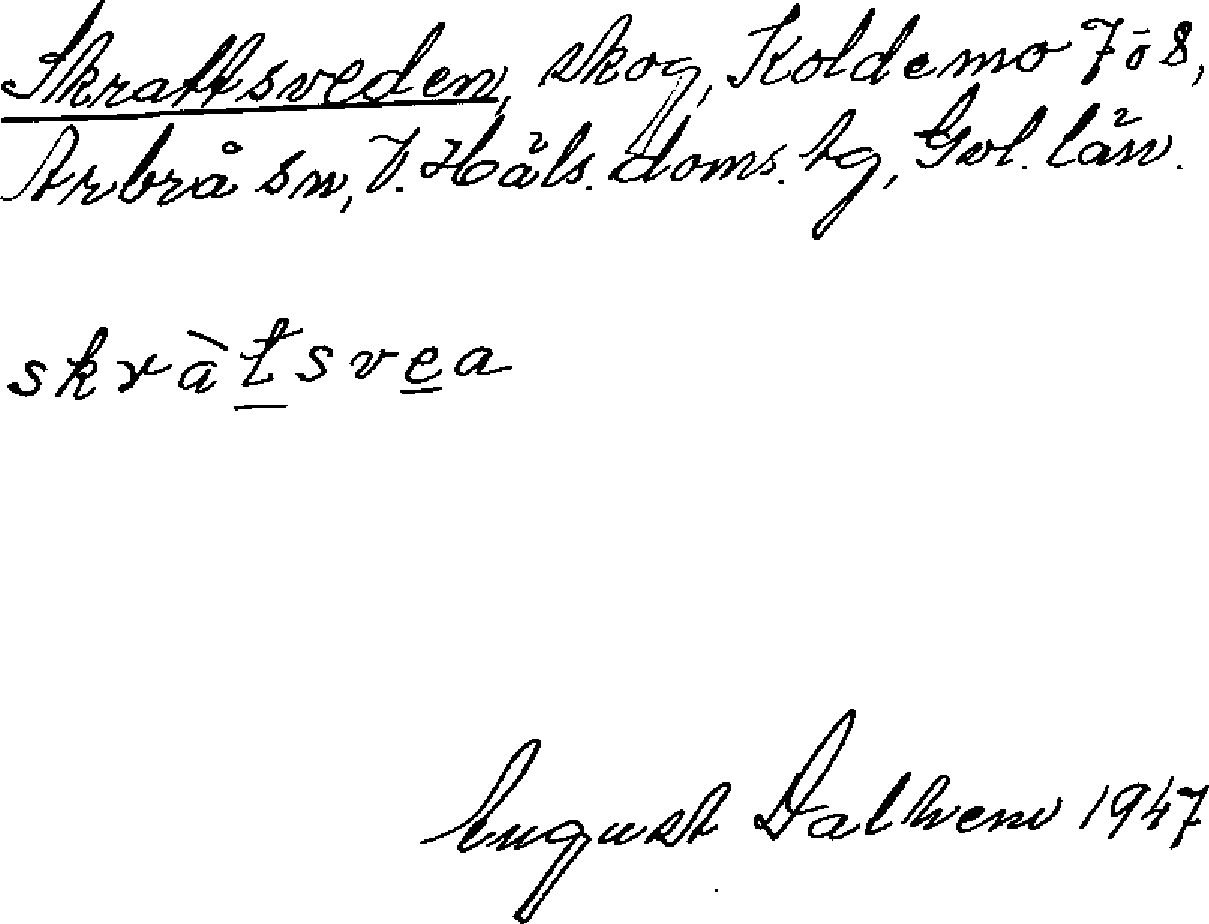 Skrattsveden, skog, Koldemo 7 o 8,
Arbrå sn, V. Häls. doms. tg, Gvl. län.
skràtsvea
August Dalhem 1947